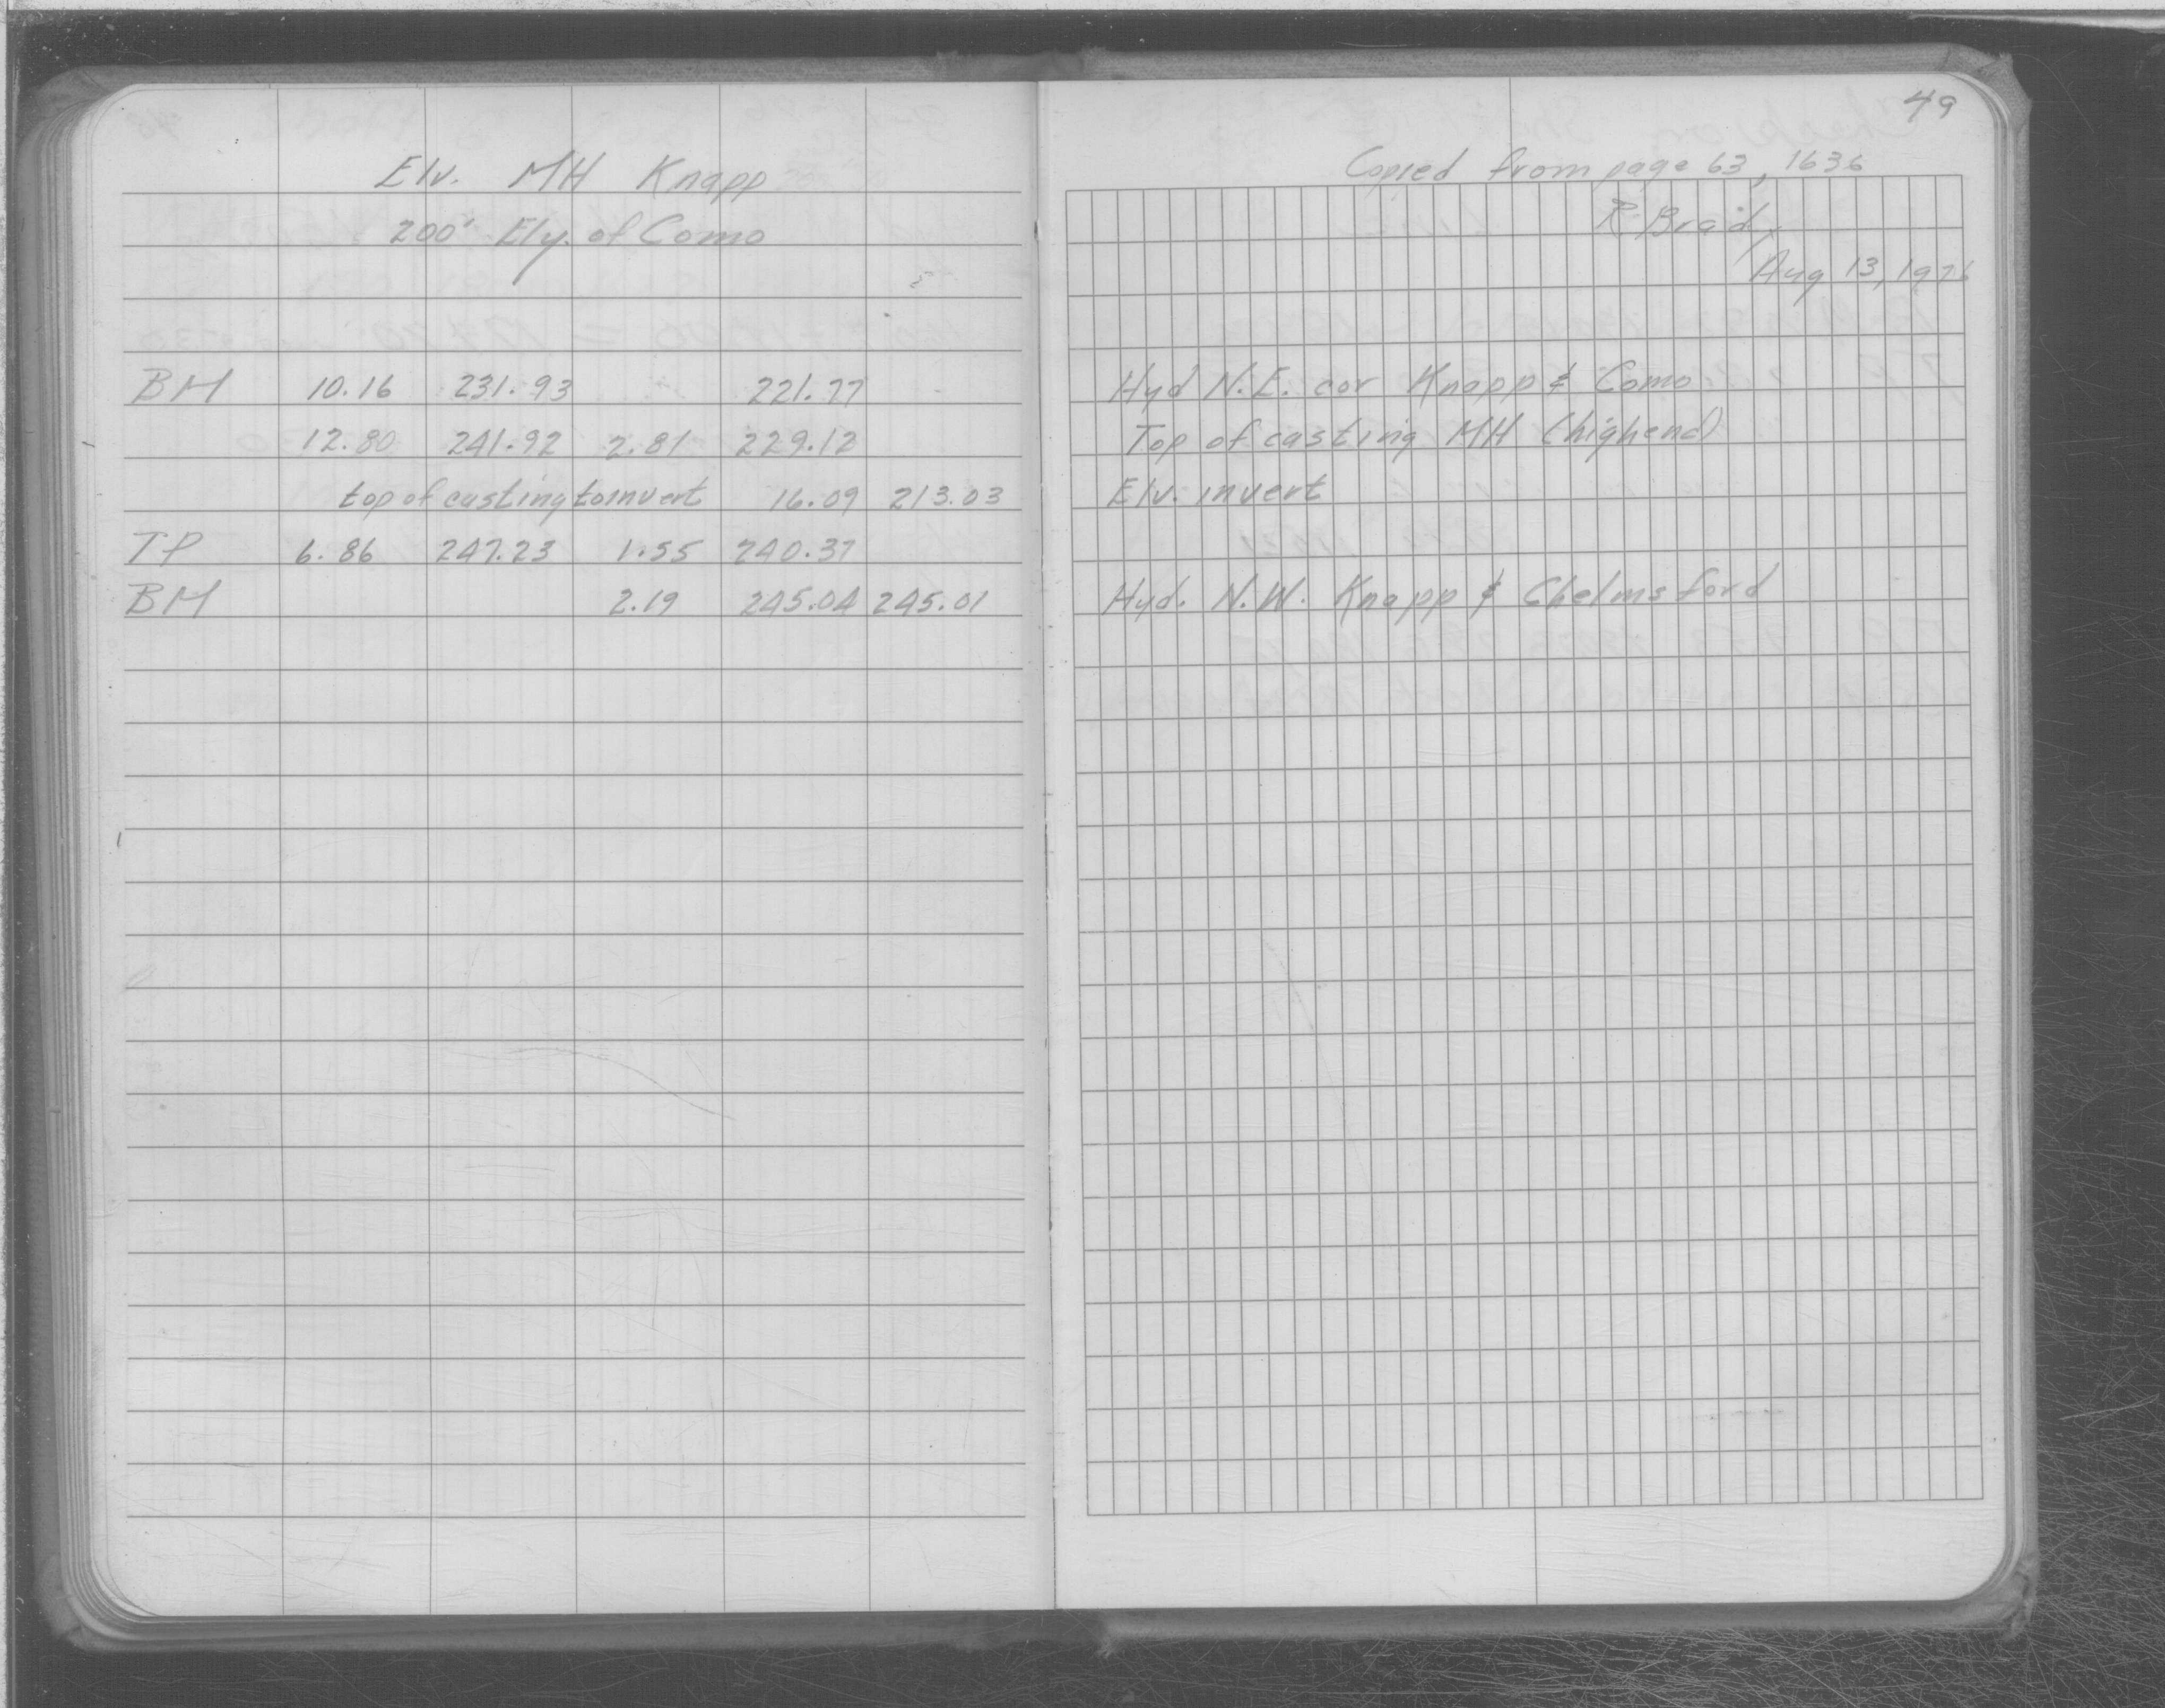 49
Elv. MH Knapp
200' Ely. of Como
Copied from page 63, 1636
R Braid
Aug 13, 1976
BM 10.16 231.93 221.77 Hyd N.E. cor Knapp & Como
12.80 241.92 2.81 229.12 Top of casting MH (high end)
top of casting to invert 16.09 213.03 Elv. invert
TP 6.86 247.23 1.55 240.37
BM 2.19 245.04 245.01 Hyd. N.W. Knapp & Chelmsford